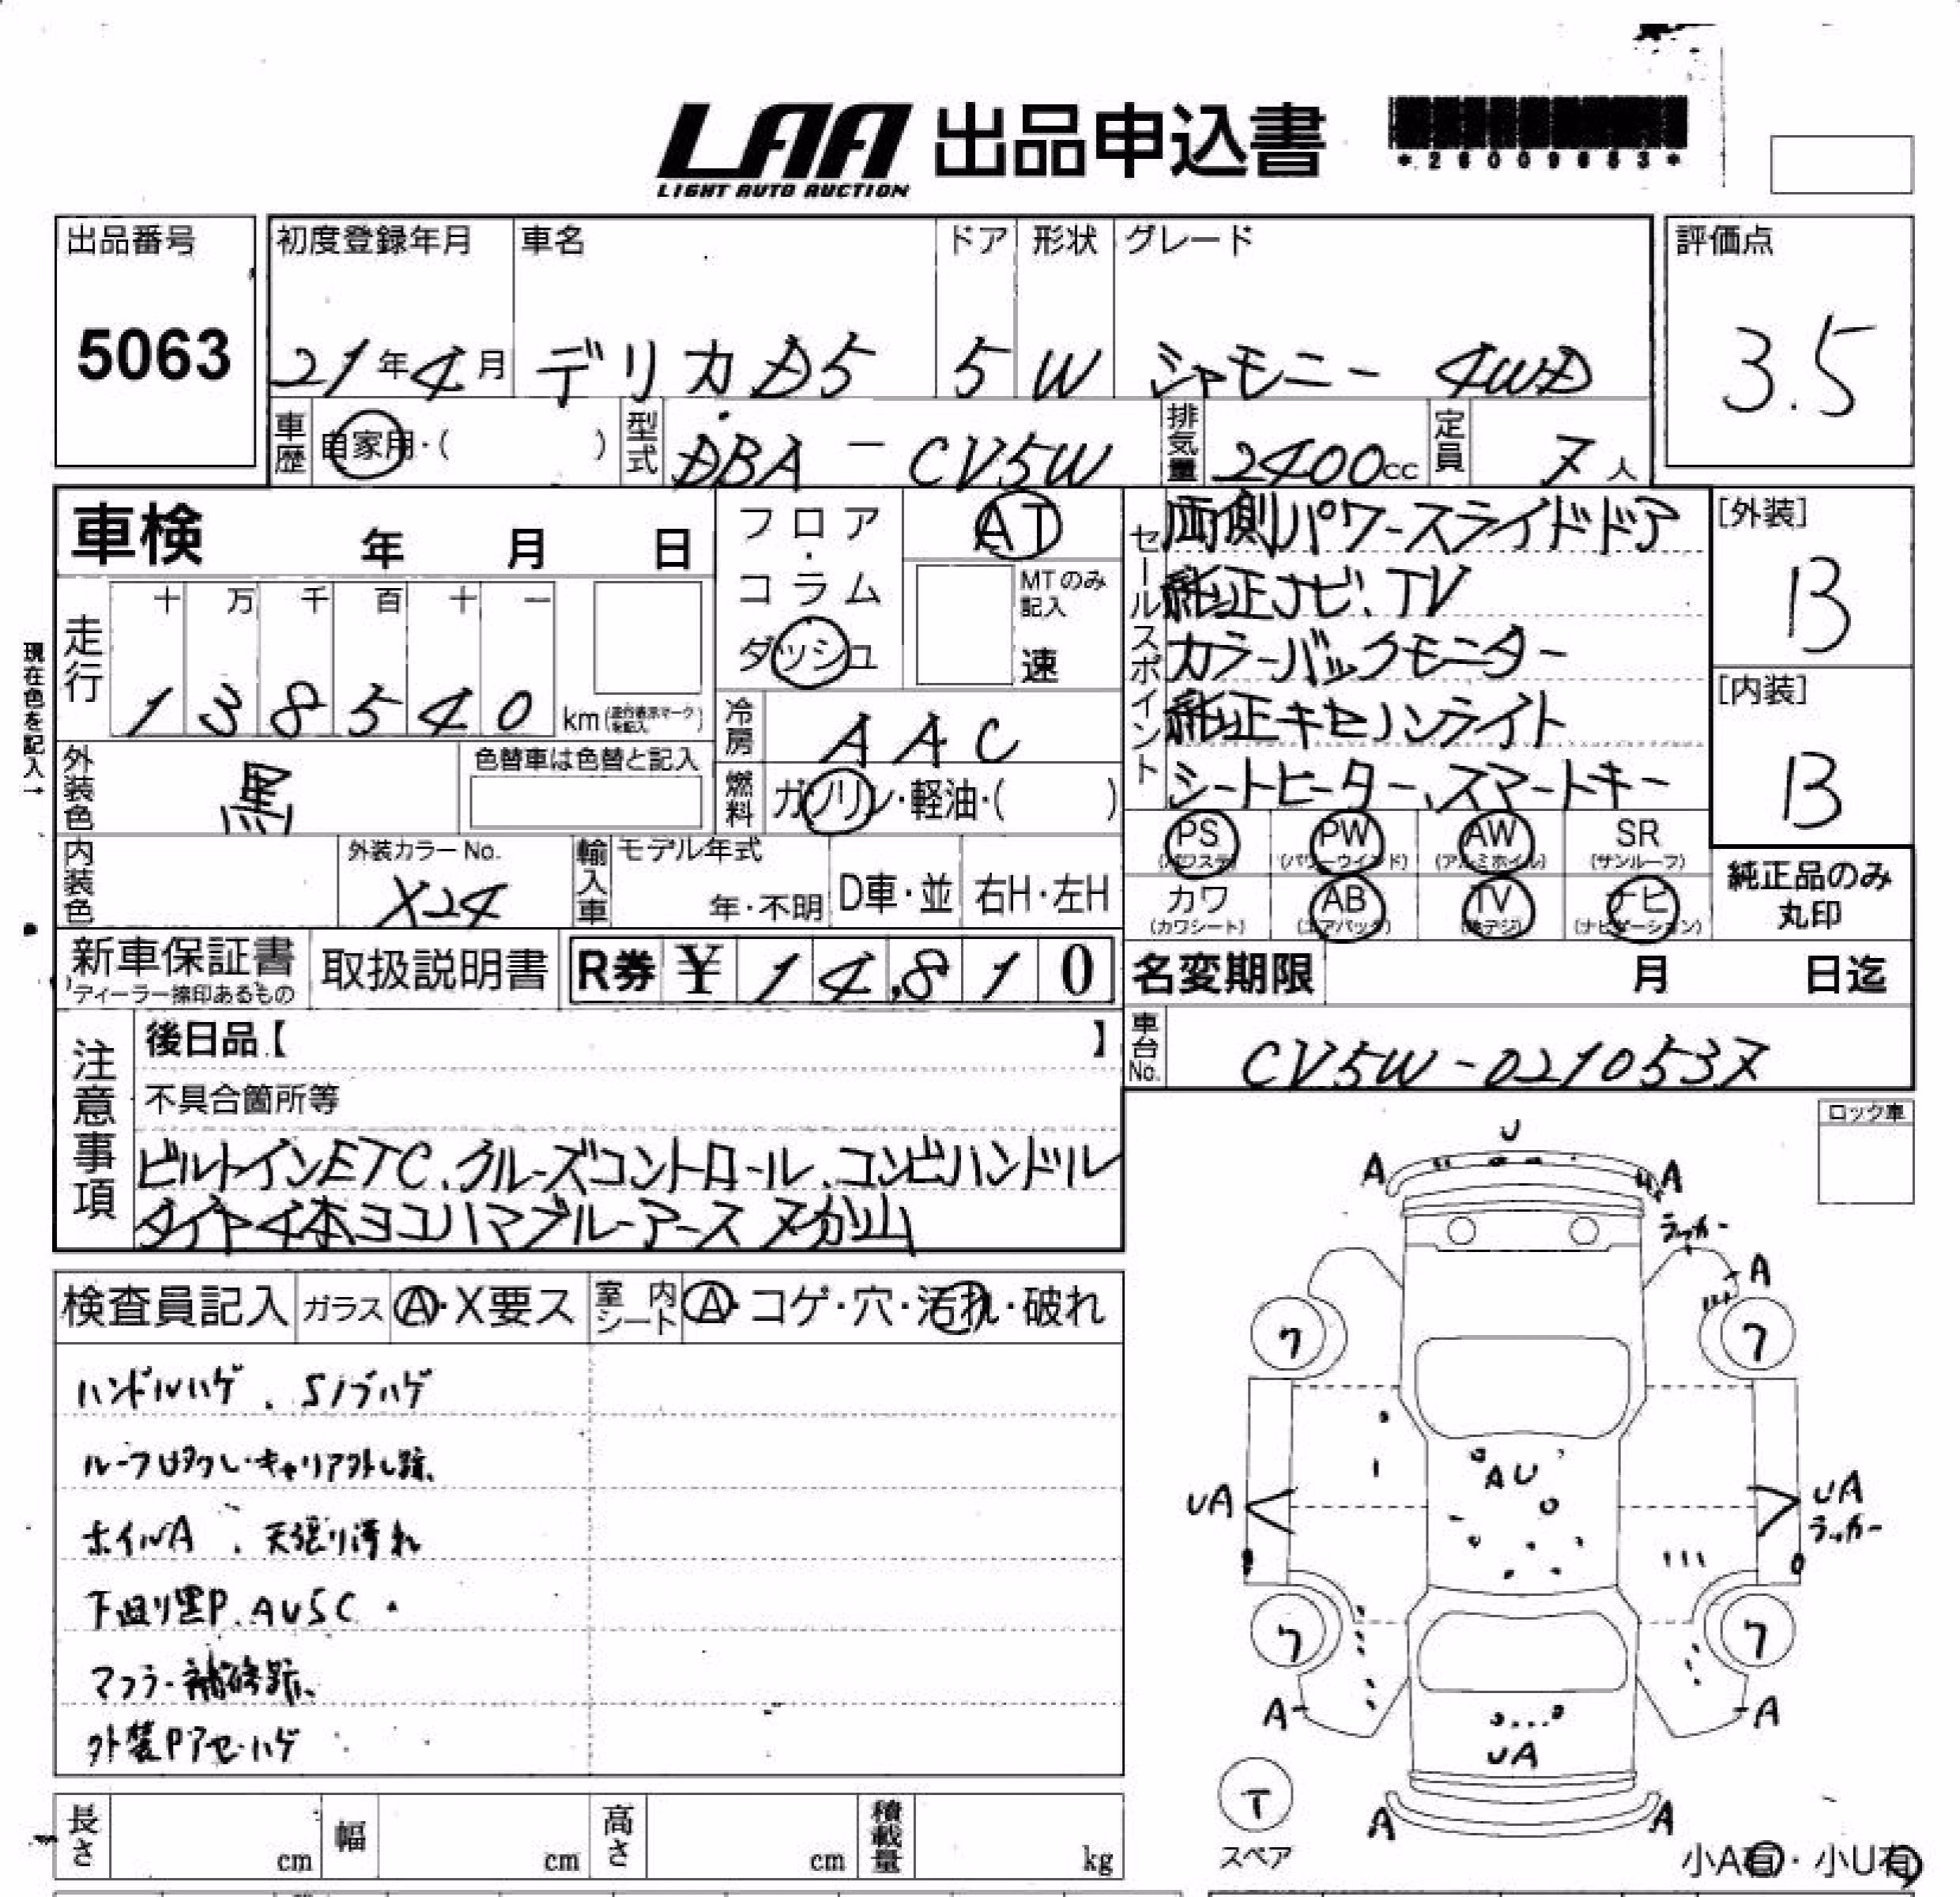 LAA 出品申込書
LIGHT AUTO AUCTION
出品番号 初度登録年月 車名 ドア 形状 グレード 評価点
5063 21年4月 デリカD5 5 W シャモニー 4WD 3.5
車歴 自家用・( ) 型式 DBA-CV5W 排気量 2400cc 定員 7人
車検 年 月 日
フロア・コラム ダッシュ AT
MTのみ記入 速
セールスポイント
両側パワースライドドア
純正ナビ、TV
カラーバックモニター
純正キセノンライト
シートヒーター、スマートキー
[外装] B
[内装] B
現在色を記入→
走行 十 万 千 百 十 一
138540 km(走行表示マークを記入)
冷房 AAC
燃料 ガソリン・軽油・( )
外装色 黒 色替車は色替と記入
内装色 外装カラーNo. X24
輸入車 モデル年式 年・不明 D車・並 右H・左H
PS(パワステ) PW(パワーウインド) AW(アルミホイル) SR(サンルーフ)
カワ(カワシート) AB(エアバック) TV(地デジ) ナビ(ナビゲーション)
純正品のみ丸印
新車保証書 ディーラー捺印あるもの 取扱説明書 R券 ¥14,810
名変期限 月 日迄
車台No. CV5W-0210537
注意事項
後日品【 】
不具合箇所等
ビルトインETC、クルーズコントロール、コンビハンドル
タイヤ4本ヨコハマブルーアース 7分山
ロック車
検査員記入 ガラス A・X要ス 室内シート A・コゲ・穴・汚れ・破れ
ハンドルハゲ、Sノブハゲ
キャリア外し跡、
ホイルA、天張り汚れ
下回り黒P、AUSC
マフラー補修跡、
外装Pアセ・ハゲ
U
A A
ラッカー
A
7 7
AU
UA UA
ラッカー
7 7
A A
UA
T
スペア
A A
小A有・小U有
長さ cm 幅 cm 高さ cm 積載量 kg